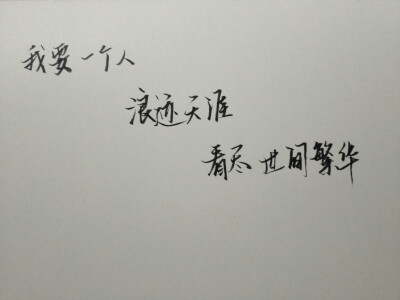 我要一个人
浪迹天涯
看尽世间繁华